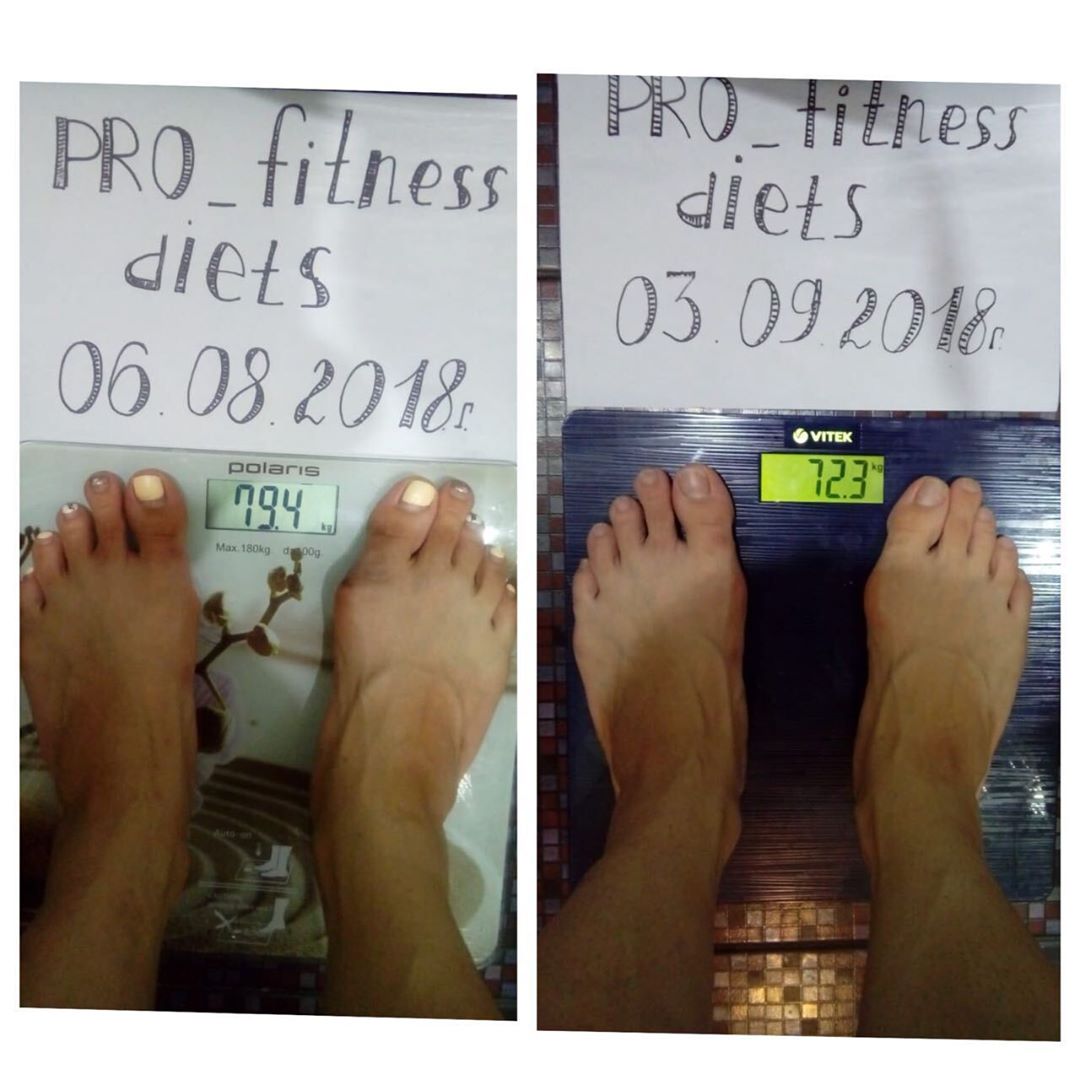 PRO_fitness
diets
06.08.2018г.
polaris
79.4 kg
Max.180kg
Auto-on
PRO_fitness
diets
03.09.2018г.
VITEK
72.3 kg